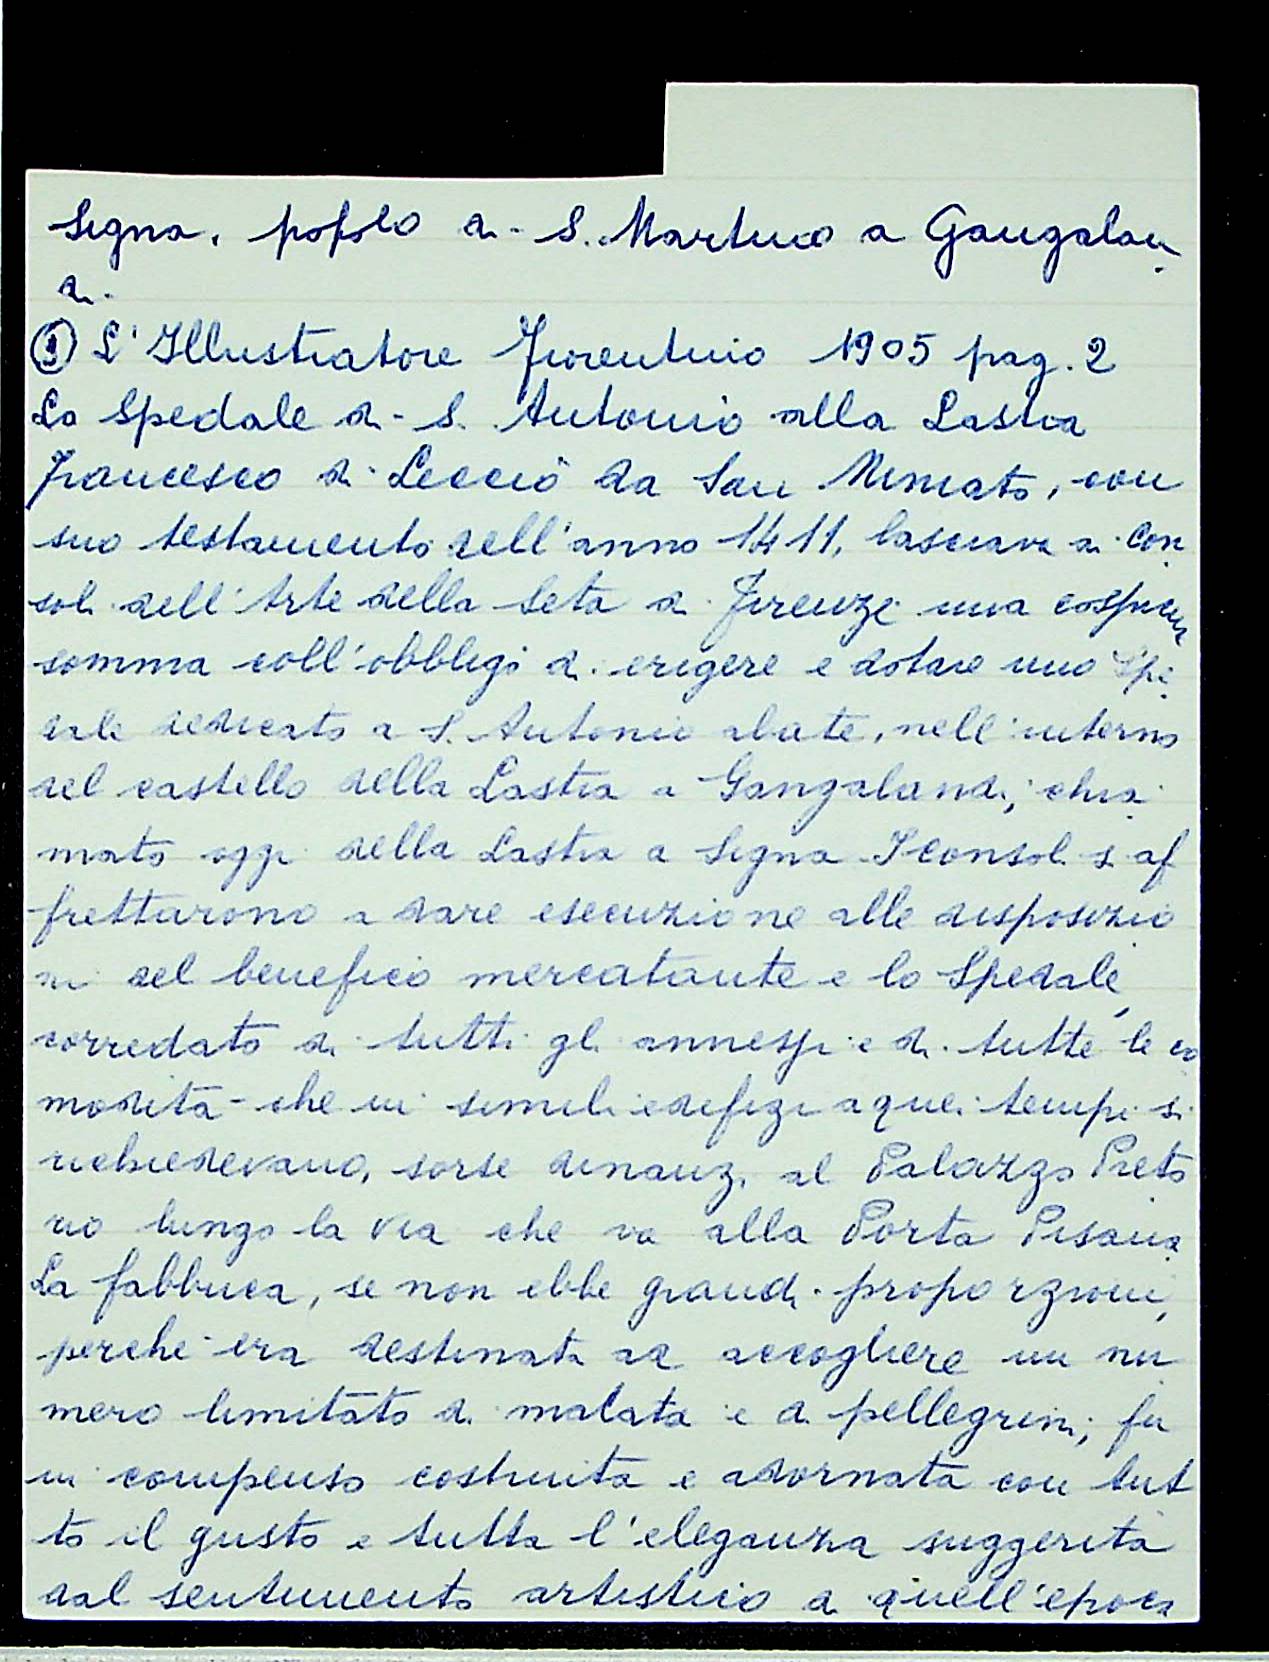 Segna, popolo di S. Martino a Gangalan
di.
③ L'Illustratore Fiorentino 1905 pag. 2
Lo Spedale di S. Antonio alla Lastra
Francesco di Leccio da San Miniato, con
suo testamento dell'anno 1411, lasciava ai Con
soli dell'Arte della Seta di Firenze una cospicua
somma coll'obbligo di erigere e dotare uno Spe
dale dedicato a S. Antonio abate, nell'interno
del castello della Lastra a Gangalandi, chia
mato oggi della Lastra a Signa I consoli si af
frettarono a dare esecuzione alle disposizio
ni del benefico mercatante e lo Spedale,
corredato di tutti gli annessi e di tutte le co
modità che in simili edifizi a quei tempi si
richiedevano, sorse dinanzi al Palazzo Preto
rio lungo la via che va alla Porta Pisana
La fabbrica, se non ebbe grandi proporzioni,
perchè era destinata ad accogliere un nu
mero limitato di malata e di pellegrini, fu
in compenso costruita e adornata con tut
to il gusto e tutta l'eleganza suggerita
dal sentimento artistico di quell'epoca